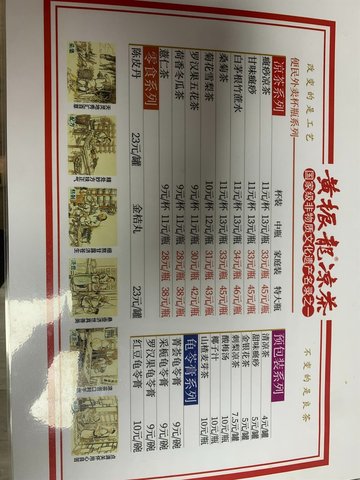 改变的是工艺
黄振龙®凉茶
不变的是良茶
国家级非物质文化遗产名录之一
便民外卖杯瓶系列
凉茶系列
杯装 中瓶 家庭装 特大瓶
癍痧凉茶 11元/杯 13元/瓶 33元/瓶 45元/瓶
甘味癍痧 11元/杯 13元/瓶 33元/瓶 45元/瓶
白茅根竹蔗水 11元/杯 13元/瓶 34元/瓶 46元/瓶
桑菊茶 11元/杯 13元/瓶 33元/瓶 45元/瓶
菊花雪梨茶 10元/杯 12元/瓶 31元/瓶 43元/瓶
罗汉果五花茶 9元/杯 11元/瓶 30元/瓶 42元/瓶
荷香冬瓜茶 9元/杯 11元/瓶 28元/瓶 38元/瓶
薏仁茶 9元/杯 11元/瓶 28元/瓶 38元/瓶
零食系列
陈皮丹 23元/罐 金桔丸 23元/罐
预包装系列
清凉茶 4元/罐
甜味癍痧 5元/罐
金银花茶 5元/罐
刺梨凉茶 7.5元/罐
酸梅汤 10元/瓶
椰子汁 10元/瓶
山楂麦芽茶 10元/瓶
龟苓膏系列
菁荟龟苓膏 9元/碗
采瓶龟苓膏 9元/碗
罗汉果龟苓膏 9元/碗
红豆龟苓膏 10元/碗